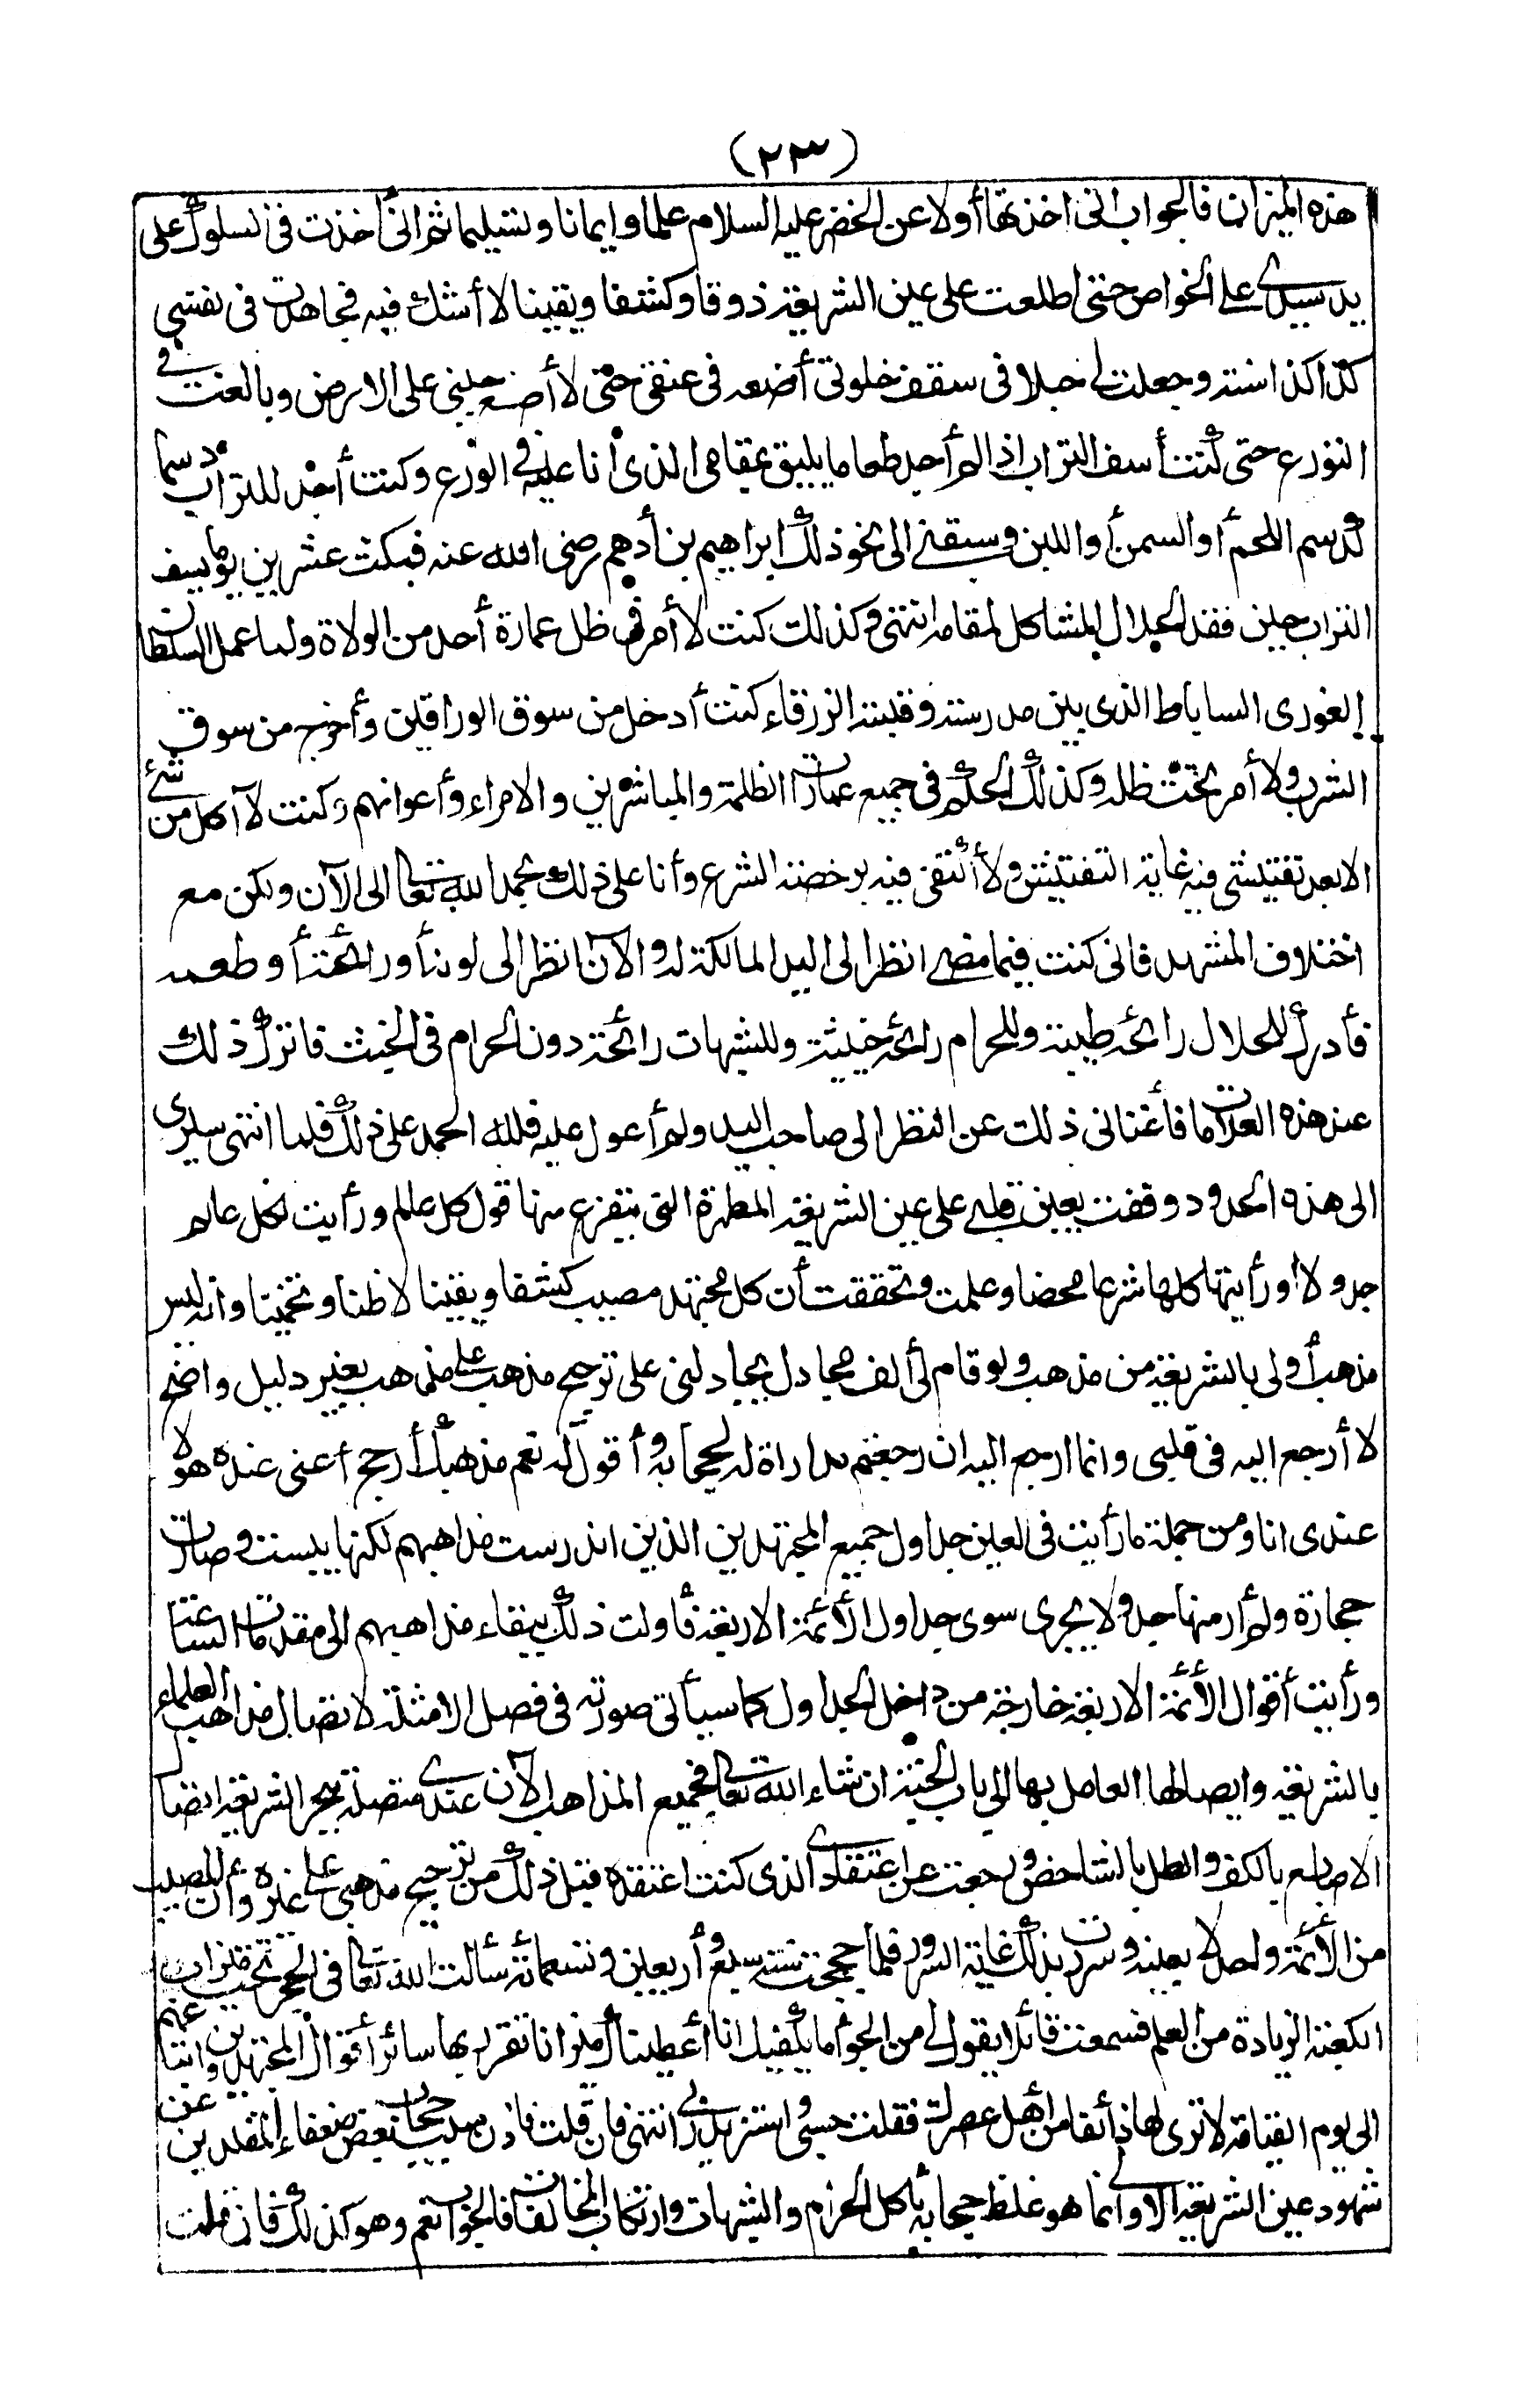 (٢٣)
هذه الميزان فالجواب انى اخذتها أولا عن الخضر عليه السلام علما وايمانا وتسليما ثم انى أخذت فى السلوك على
يد سيدى على الخواص حتى اطلعت على عين الشريعة ذوقا وكشفا ويقينا لا أشك فيه فجاهدت فى نفسى
كذا كذا سنة وجعلت لى حبلا فى سقف خلوتى أضعه فى عنقى حتى لا أضع جنبى على الارض وبالغت فى
التورع حتى كنت أسف التراب اذا لم أجد طعاما يليق بمقامى الذى أنا عليه فى الورع وكنت أجد للتراب دسما
كدسم اللحم أو السمن أو اللبن وسبقنى الى نحو ذلك ابراهيم بن أدهم رضى الله عنه فمكث عشرين يوما يسف
التراب حين فقد الحلال المشاكل لمقامه انتهى وكذلك كنت لا أمر فى ظل عمارة أحد من الولاة ولما عمل السلطان
الغورى الساباط الذى بين مدرسته وقبته الزرقاء كنت أدخل من سوق الوراقين وأخرج من سوق
الشرب ولا أمر تحت ظله وكذلك الحكم فى جميع عمارات الظلمة والمباشرين والامراء وأعوانهم وكنت لا آكل من شئ
الا بعد تفتيشى فيه غاية التفتيش ولا أكتفى فيه برخصة الشرع وأنا على ذلك بحمد الله تعالى الى الآن ولكن مع
اختلاف المشهد فانى كنت فيما مضى انظر الى اليد المالكة له والآن انظر الى لونه أو رائحته أو طعمه
فأدرك للحلال رائحة طيبة وللحرام رائحة خبيثة وللشبهات رائحة دون الحرام فى الخبث فاترك ذلك
عند هذه العلامات فأغنانى ذلك عن النظر الى صاحب اليد ولم أعول عليه فلله الحمد على ذلك فلما انتهى سيرى
الى هذه الحدود وقفت بعين قلبى على عين الشريعة المطهرة التى يتفرع منها قول كل عالم ورأيت لكل عالم
جدولا ورأيتها كلها شرعا محضا وعلمت وتحققت أن كل مجتهد مصيب كشفا ويقينا لا ظنا وتخمينا وانه ليس
مذهب أولى بالشريعة من مذهب ولو قام لى ألف مجادل يجادلنى على ترجيح مذهب على مذهب بغير دليل واضح
لا أرجع اليه فى قلبى وانما ارجع اليه ان رجعت مداراة له لحجابه وأقول له نعم مذهبك أرجح أعنى عنده هو لا
عندى انا ومن جملة ما رأيت فى العين جداول جميع المجتهدين الذين اندرست مذاهبهم لكنها يبست وصارت
حجارة ولم أر منها جدولا يجرى سوى جداول الأئمة الاربعة فأولت ذلك ببقاء مذاهبهم الى مقدمات الساعة
ورأيت أقوال الأئمة الاربعة خارجة من داخل الجداول كما سيأتى صورته فى فصل الامثلة لاتصال مذاهب العلماء
بالشريعة وايصالها العامل بها الى باب الجنة ان شاء الله تعالى فجميع المذاهب الآن عندى متصلة ببحر الشريعة اتصال
الاصابع بالكف والظل بالشاخص ورجعت عن اعتقادى الذى كنت اعتقده قبل ذلك من ترجيح مذهبى على غيره وأن المصيب
من الأئمة واحد لا بعينه وسررت بذلك غاية السرور فلما حججت سنة سبع وأربعين وتسعمائة سألت الله تعالى فى الحجر تحت ميزاب
الكعبة الزيادة من العلم فسمعت قائلا يقول لى من الجو أما يكفيك انا أعطيناك ميزانا تقرر بها سائر أقوال المجتهدين واتباعهم
الى يوم القيامة لا ترى لها ذائقا من أهل عصرك فقلت حسبى واستزيد ربى انتهى فان قلت فاذن سبب حجاب بعض ضعفاء المقلدين عن
شهود عين الشريعة الاولى انما هو غلظ حجابه بأكل الحرام والشبهات وارتكاب المخالفات فالجواب نعم وهو كذلك فان قلت